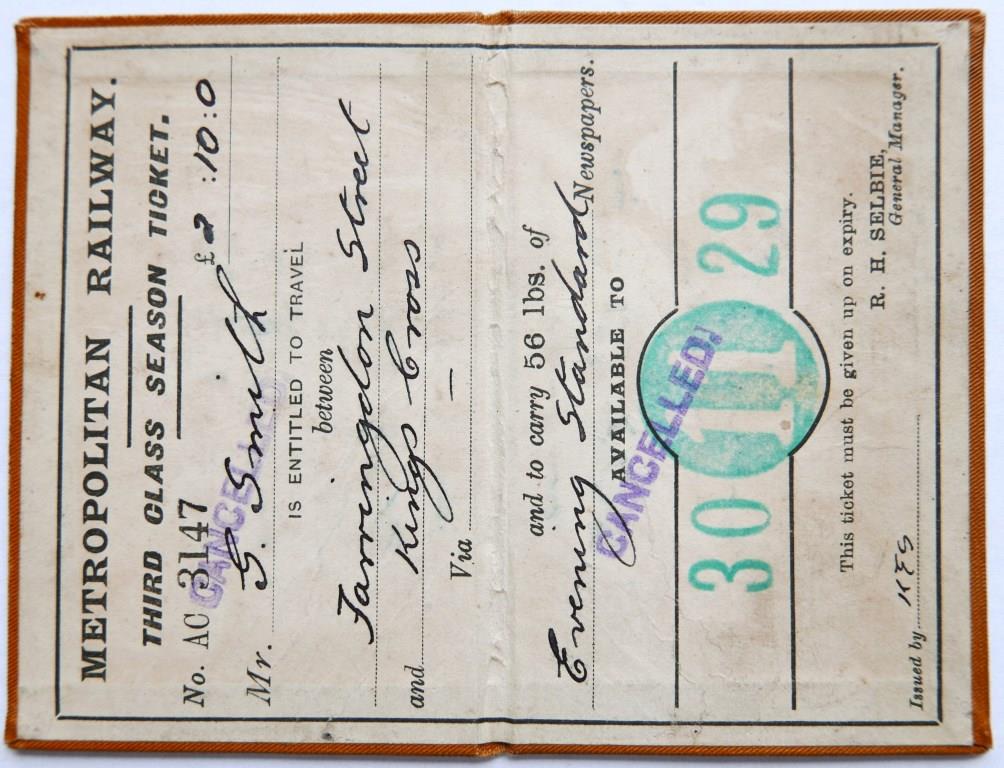 METROPOLITAN RAILWAY.
THIRD CLASS SEASON TICKET.
No. AC 3147 £ 2 : 10 : 0
CANCELLED
Mr. G. Smith
IS ENTITLED TO TRAVEL
between
Farringdon Street
and Kings Cross
Via —
and to carry 56 lbs. of
Evening Standard Newspapers.
AVAILABLE TO
CANCELLED!
30 JU 29
This ticket must be given up on expiry.
R. H. SELBIE,
General Manager.
Issued by KES